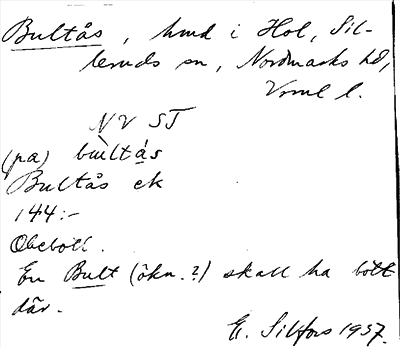 Bultås, hmd i Hol, Sil-
leruds sn, Nordmarks hd,
Vrml l.
NV ST
(pa) bùltás
Bultås ek
144:-
Obebott.
En Bult (ökn.?) skall ha bott
där.
E. Silfors 1937.